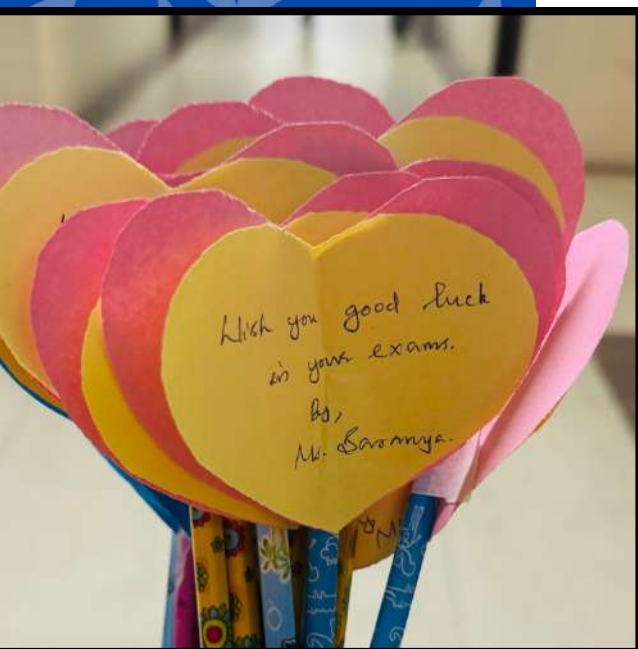 Wish you good luck
in your exams.
By,
Ms. Saranya.